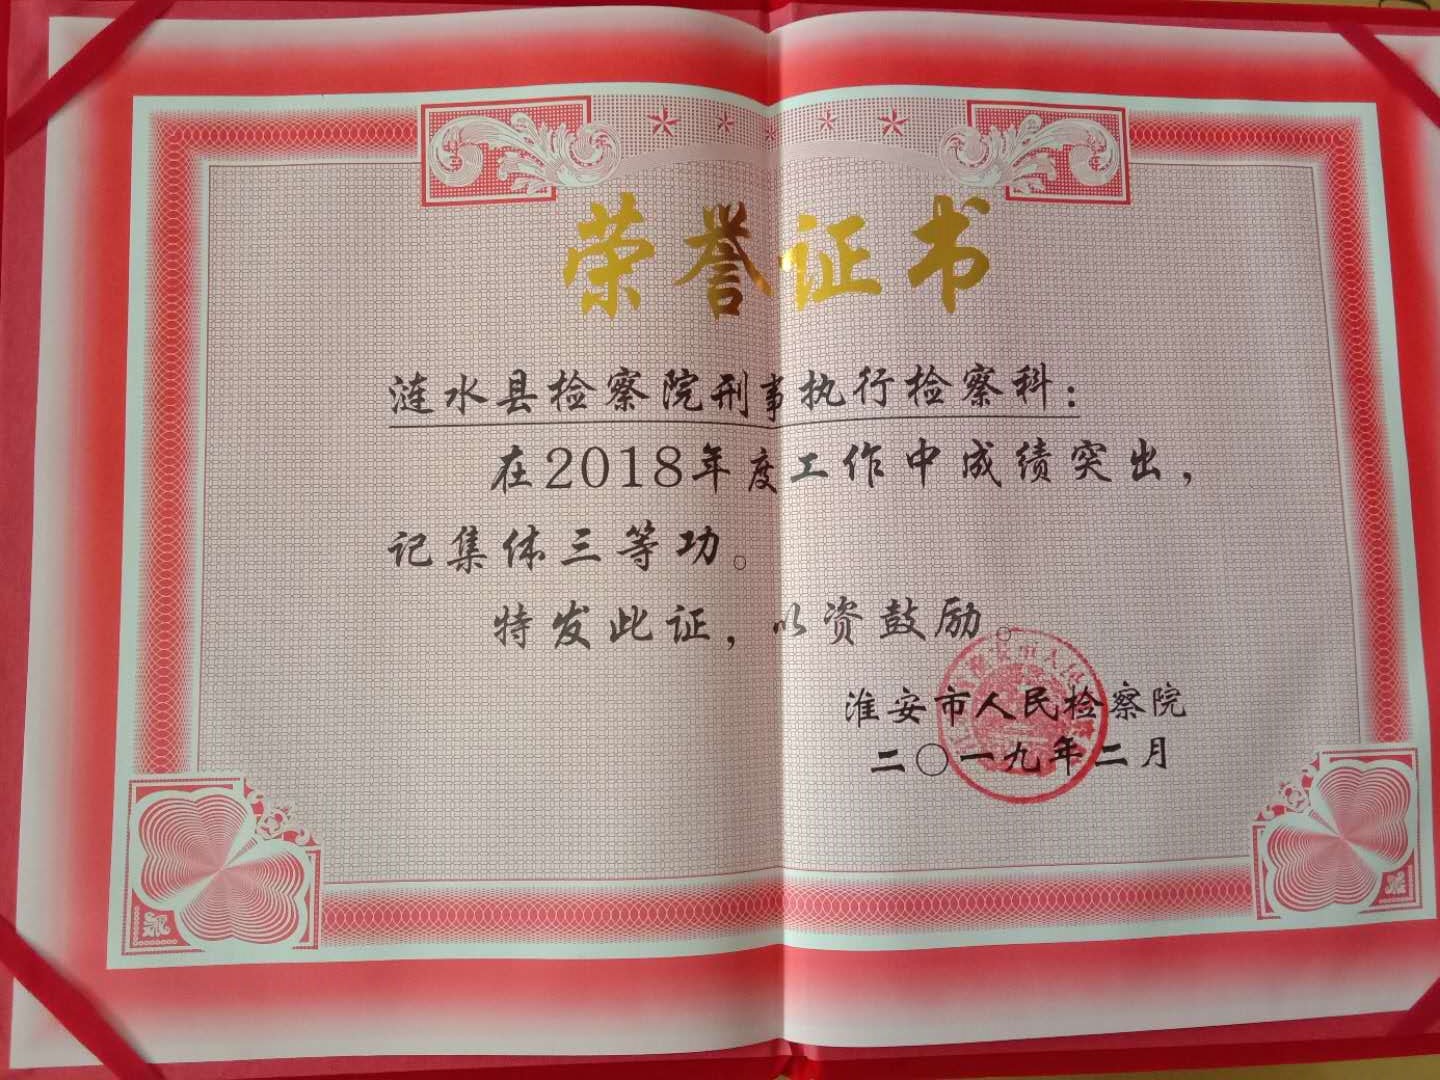 荣誉证书
涟水县检察院刑事执行检察科：
在2018年度工作中成绩突出，
记集体三等功。
特发此证，以资鼓励。
淮安市人民检察院
二〇一九年二月